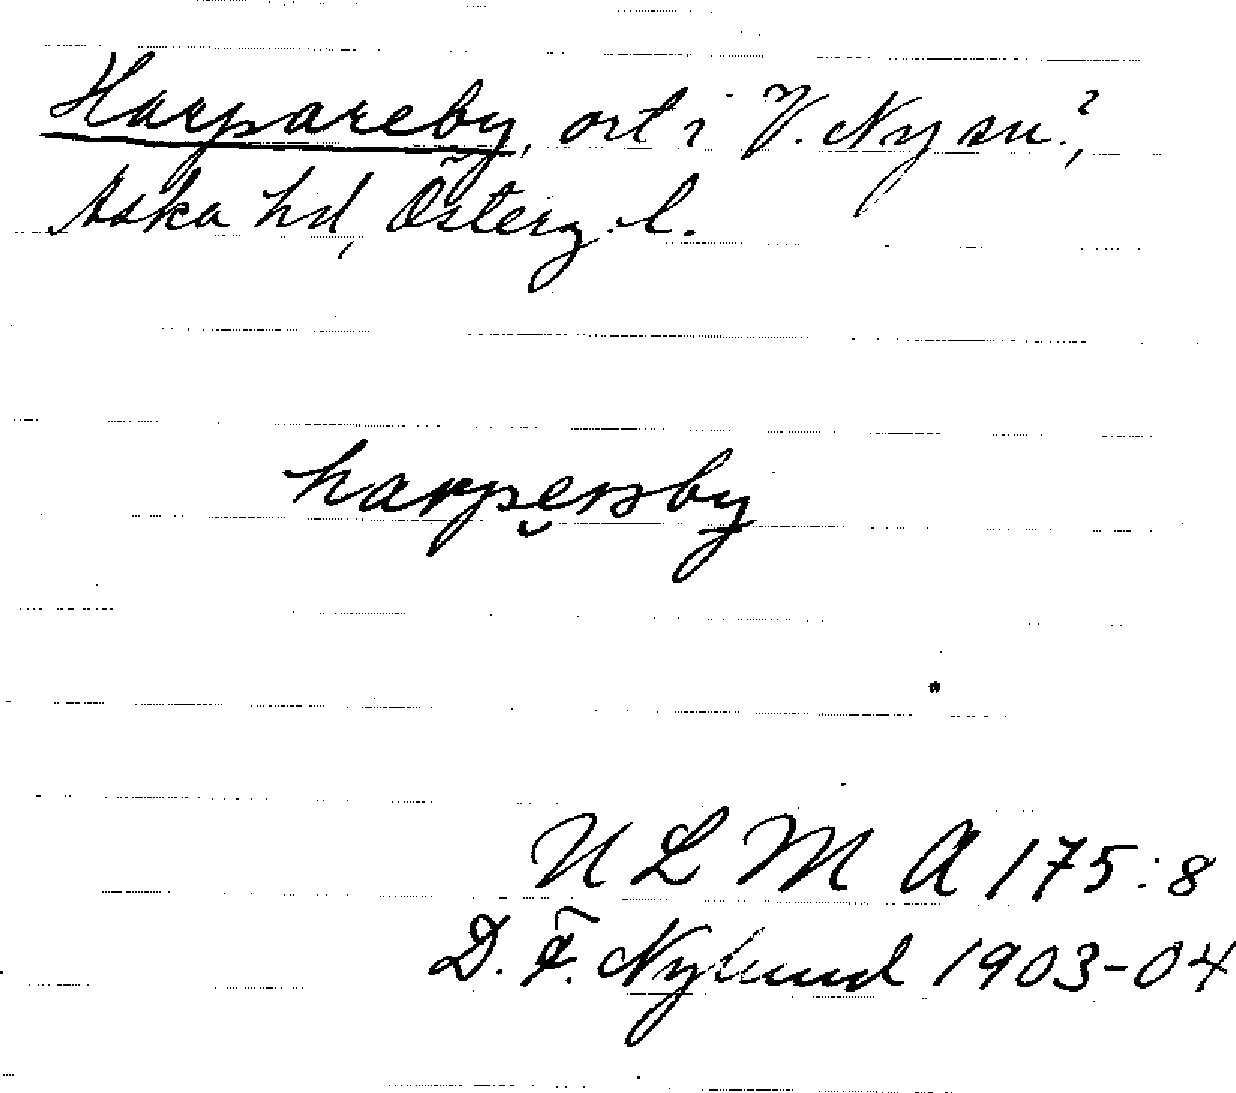 Harpareby, ort i V. Ny sn?,
Aska hd, Österg. l.
harpersby
ULMA 175:8
D. F. Nylund 1903-04